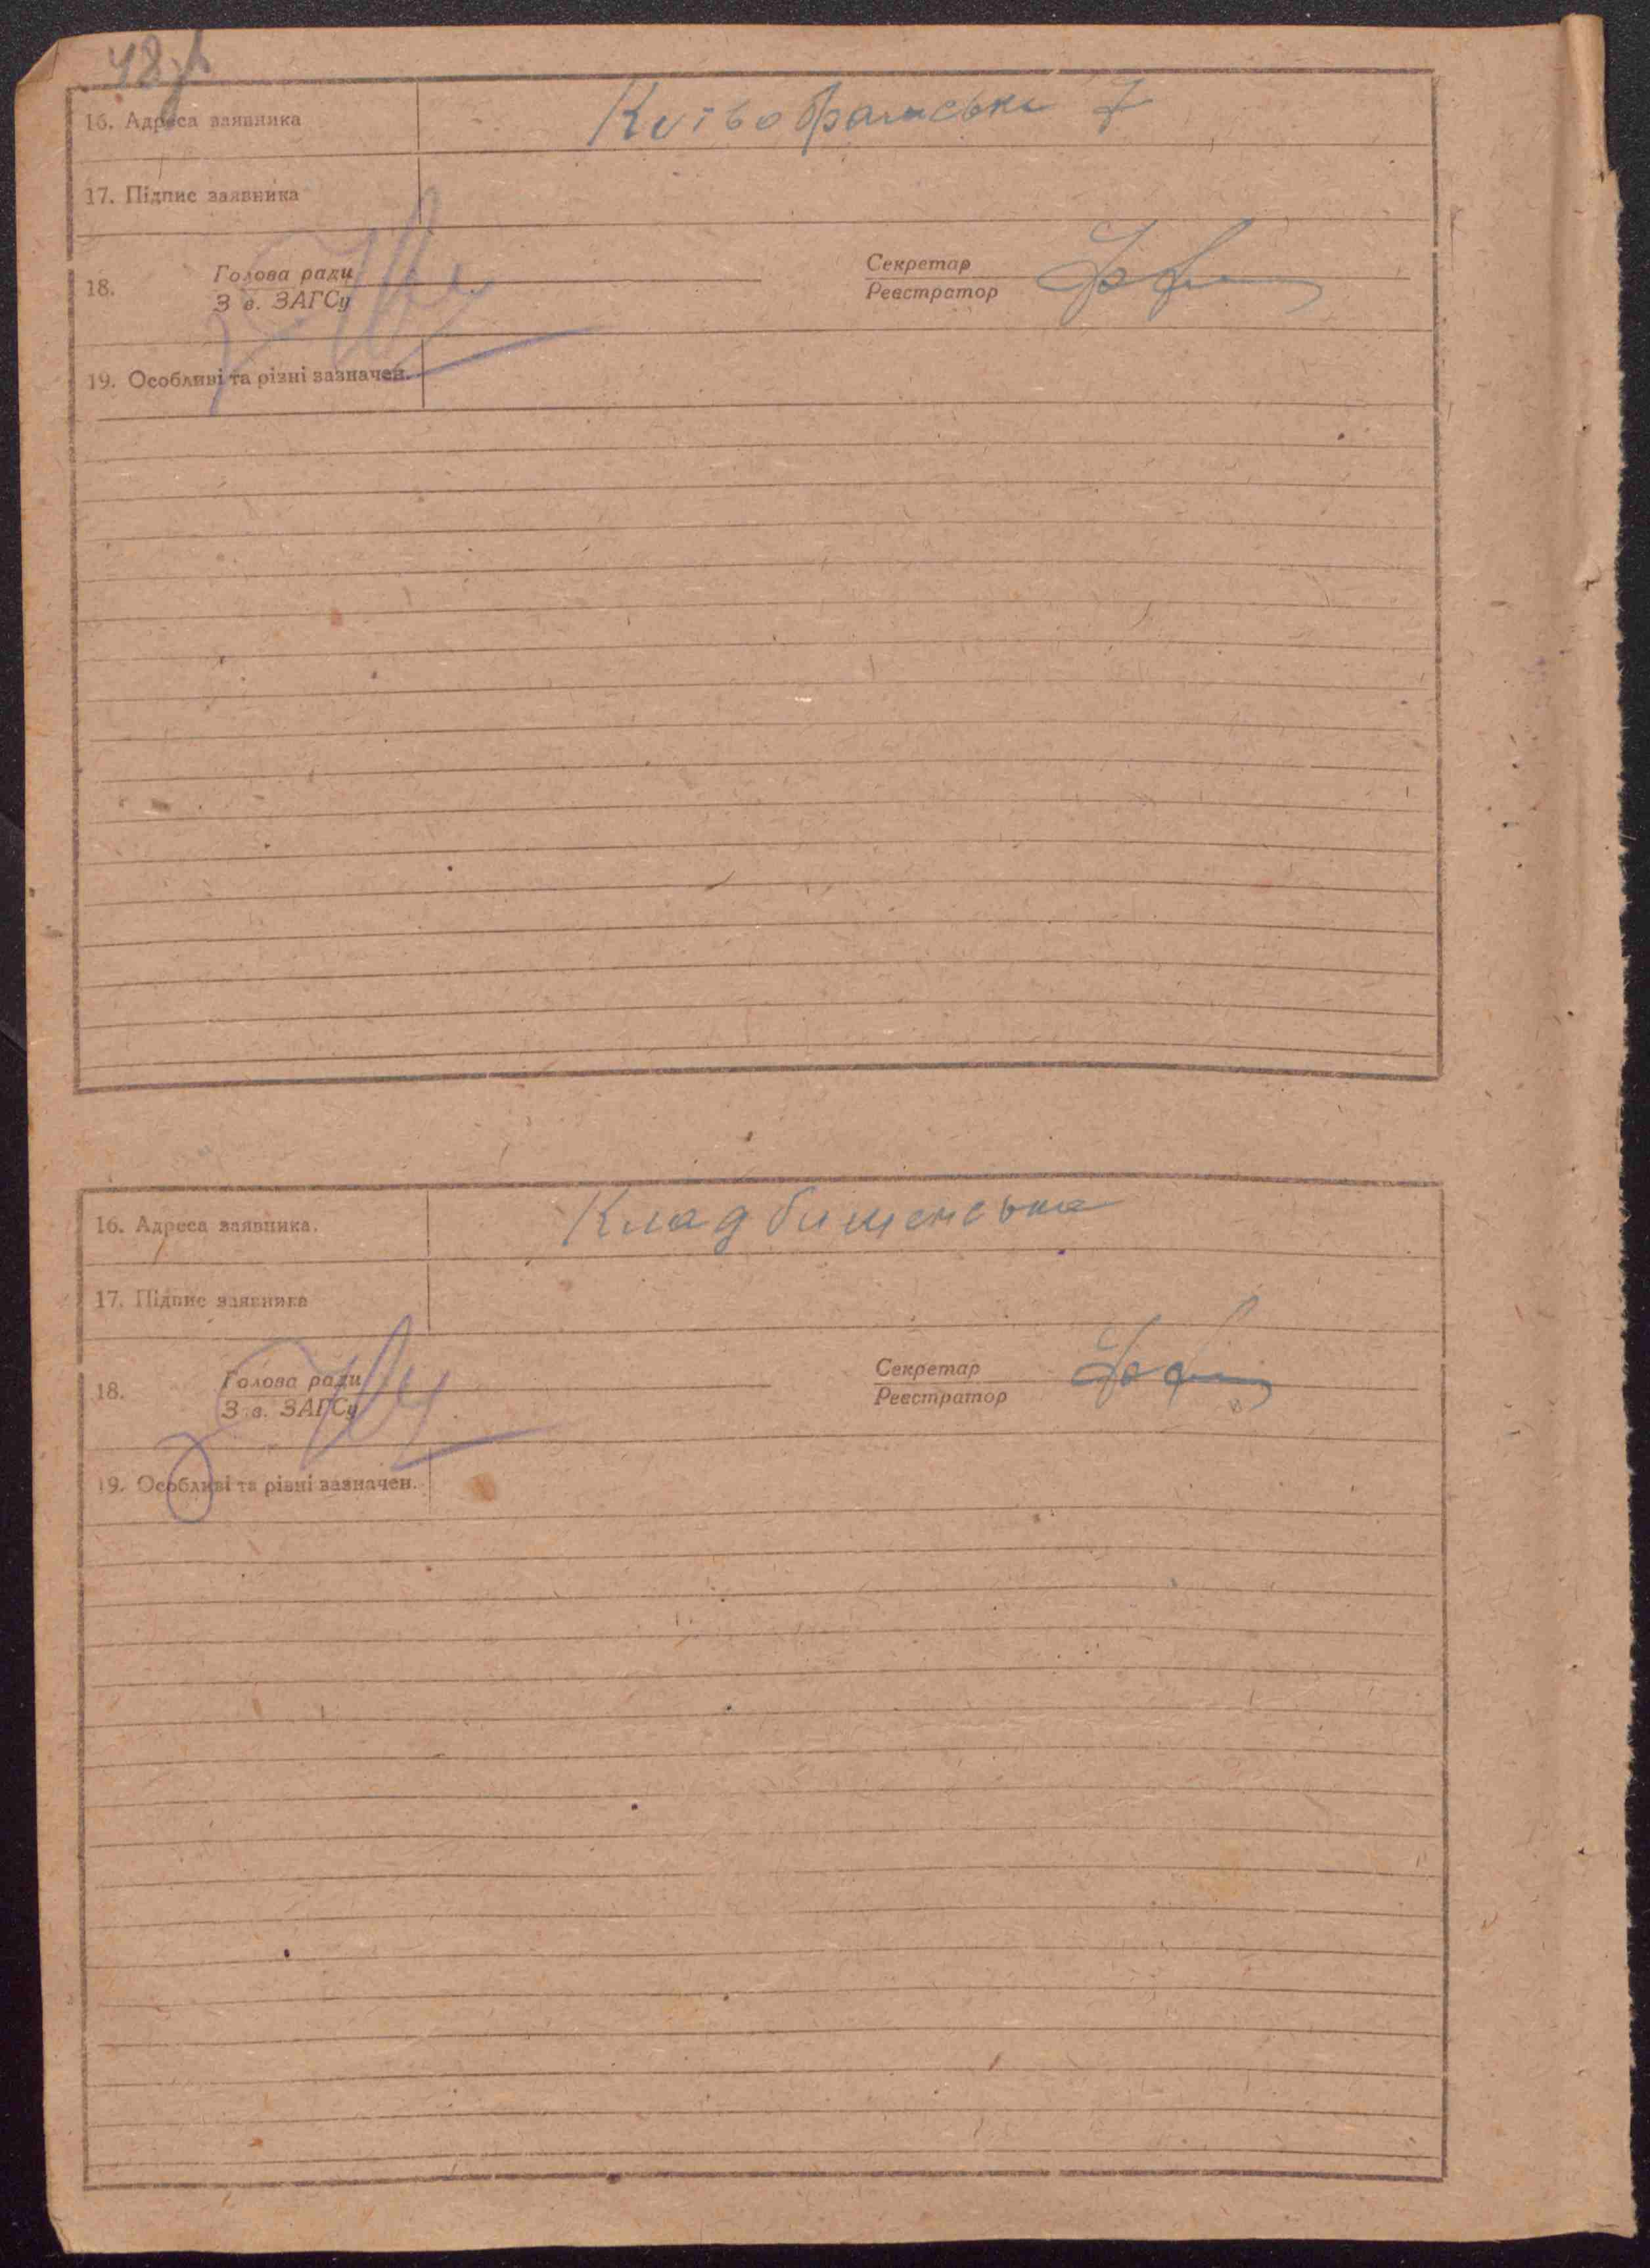 16. Адреса заявника
17. Підпис заявника
18. Голова ради Секретар
З в. ЗАГСу Реєстратор
19. Особливі та різні зазначен.
16. Адреса заявника. Кладбищенська
17. Підпис заявника
18. Голова ради Секретар
З в. ЗАГСу Реєстратор
19. Особливі та різні зазначен.